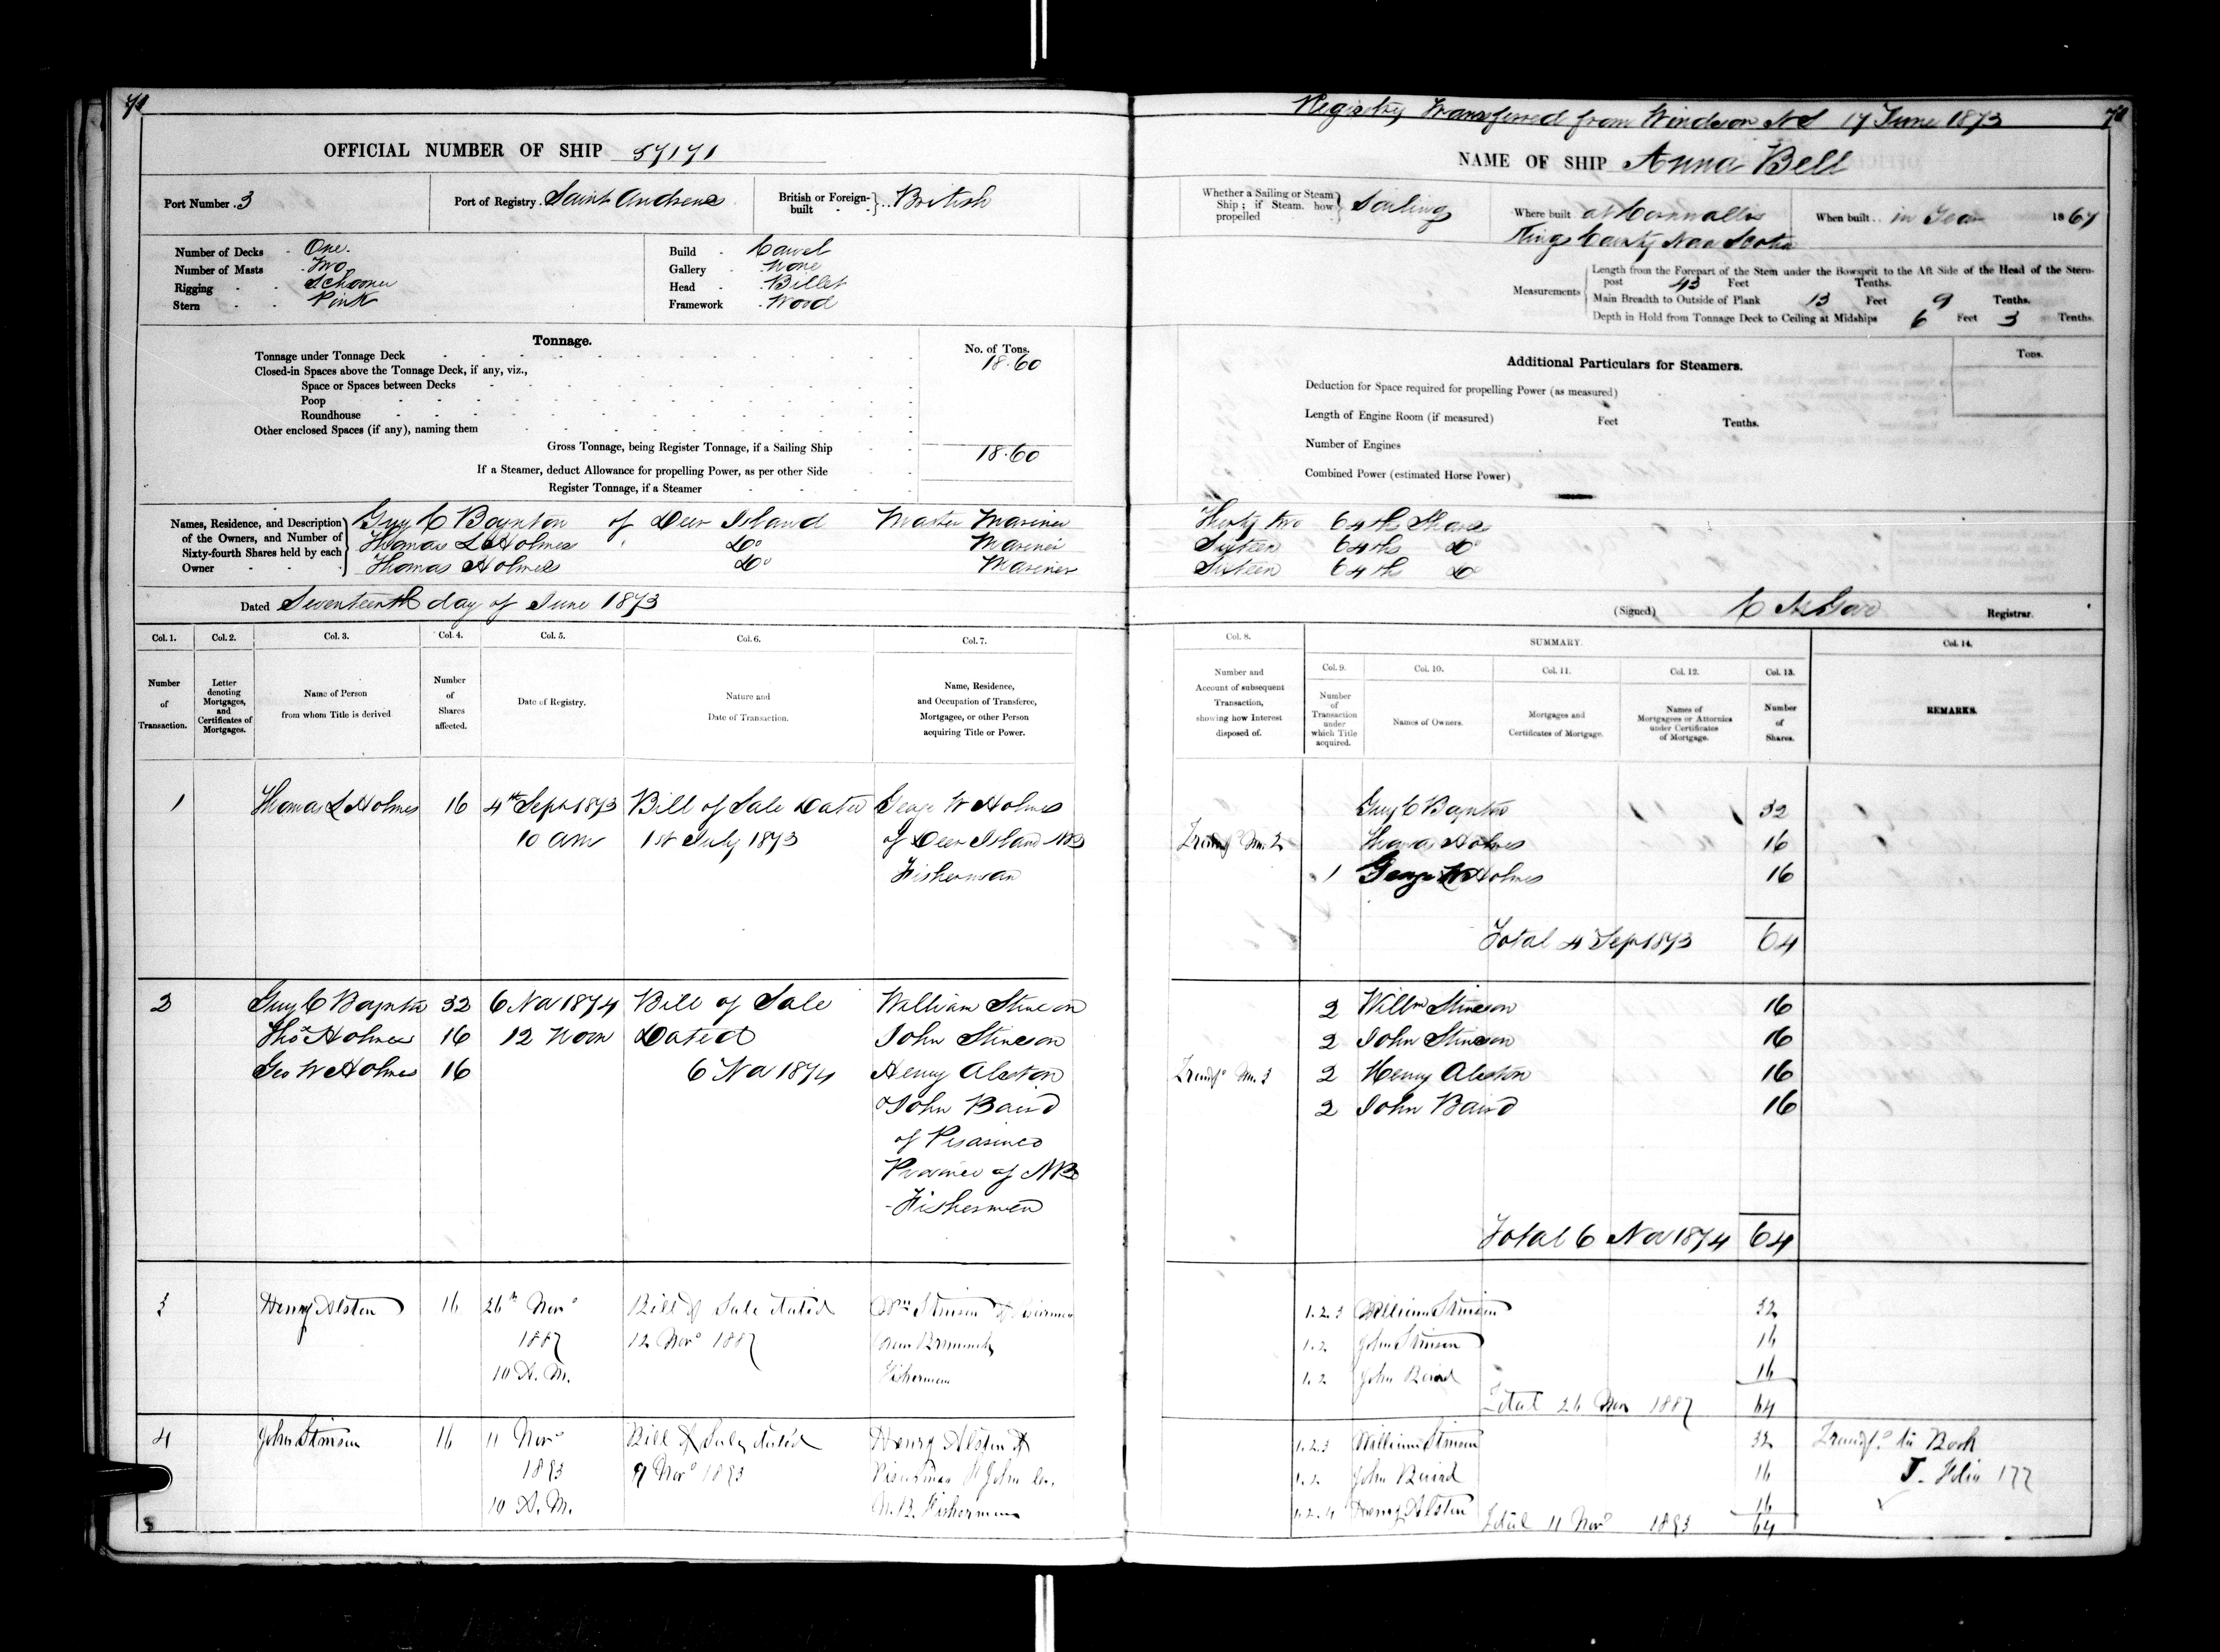 71
OFFICIAL NUMBER OF SHIP 57171
Port Number. 3
Port of Registry. Saint Andrews
British or Foreign-built British
Number of Decks One
Number of Masts Two
Rigging Schooner
Stern Pink
Build Carvel
Gallery None
Head Billet
Framework Wood
Tonnage.
No. of Tons.
Tonnage under Tonnage Deck 18.60
Closed-in Spaces above the Tonnage Deck, if any, viz.,
Space or Spaces between Decks
Poop
Roundhouse
Other enclosed Spaces (if any), naming them
Gross Tonnage, being Register Tonnage, if a Sailing Ship 18.60
If a Steamer, deduct Allowance for propelling Power, as per other Side
Register Tonnage, if a Steamer
Names, Residence, and Description of the Owners, and Number of Sixty-fourth Shares held by each Owner
Guy C Boynton of Deer Island Master Mariner
Thomas L Holmes " Do Mariner
Thomas Holmes Do Mariner
Dated Seventeenth day of June 1873
Col. 1. Col. 2. Col. 3. Col. 4. Col. 5. Col. 6. Col. 7.
Number of Transaction.
Letter denoting Mortgages, and Certificates of Mortgages.
Name of Person from whom Title is derived
Number of Shares affected.
Date of Registry.
Nature and Date of Transaction.
Name, Residence, and Occupation of Transferee, Mortgagee, or other Person acquiring Title or Power.
1 Thomas L Holmes 16 4th Sept 1873 Bill of Sale Dated George W Holmes
10 am 1st July 1873 of Deer Island NB
Fisherman
2 Guy C Boynton 32 6 Nov 1874 Bill of Sale William Stinson
Thos Holmes 16 12 Noon Dated John Stinson
Geo W Holmes 16 6 Nov 1874 Henry Alston
& John Baird
of Pisarinco
Province of NB
Fishermen
3 Henry Alston 16 26th Novr Bill of Sale dated Wm Stinson of
1887 12 Novr 1887 New Brunswick
10 A.M. Fisherman
4 John Stinson 16 11 Novr Bill of Sale dated Henry Alston of
1893 9 Novr 1893 St John Co.
10 A.M. N.B. Fisherman
Registry Transferred from Windsor NS 17 June 1873
71
NAME OF SHIP Anna Bell
Whether a Sailing or Steam Ship; if Steam, how propelled Sailing
Where built at Cornwallis
Kings County Nova Scotia
When built in Year 1867
Measurements
Length from the Forepart of the Stem under the Bowsprit to the Aft Side of the Head of the Stern-
post 43 Feet Tenths.
Main Breadth to Outside of Plank 13 Feet 9 Tenths.
Depth in Hold from Tonnage Deck to Ceiling at Midships 6 Feet 3 Tenths.
Additional Particulars for Steamers.
Tons.
Deduction for Space required for propelling Power (as measured)
Length of Engine Room (if measured) Feet Tenths.
Number of Engines
Combined Power (estimated Horse Power)
Thirty two 64ths Shares
Sixteen 64ths Do
Sixteen 64th Do
(Signed) Registrar.
Col. 8. SUMMARY. Col. 14.
Col. 9. Col. 10. Col. 11. Col. 12. Col. 13.
Number and Account of subsequent Transaction, showing how Interest disposed of.
Number of Transaction under which Title acquired.
Names of Owners.
Mortgages and Certificates of Mortgage.
Names of Mortgagees or Attornies under Certificates of Mortgage.
Number of Shares.
REMARKS.
Guy C Boynton 32
Transfd No. 2 Thomas Holmes 16
1 George W Holmes 16
Total 4 Sept 1873 64
2 Willm Stinson 16
2 John Stinson 16
Transfd No. 3 2 Henry Alston 16
2 John Baird 16
Total 6 Nov 1874 64
1.2.3 William Stinson 32
1.2 John Stinson 16
1.2 John Baird 16
Total 26 Nov 1887 64
1.2.3 William Stinson 32 Transfd to Book
1.2 John Baird 16 J. Folio 177
1.2.4 Henry Alston 16
Total 11 Novr 1893 64